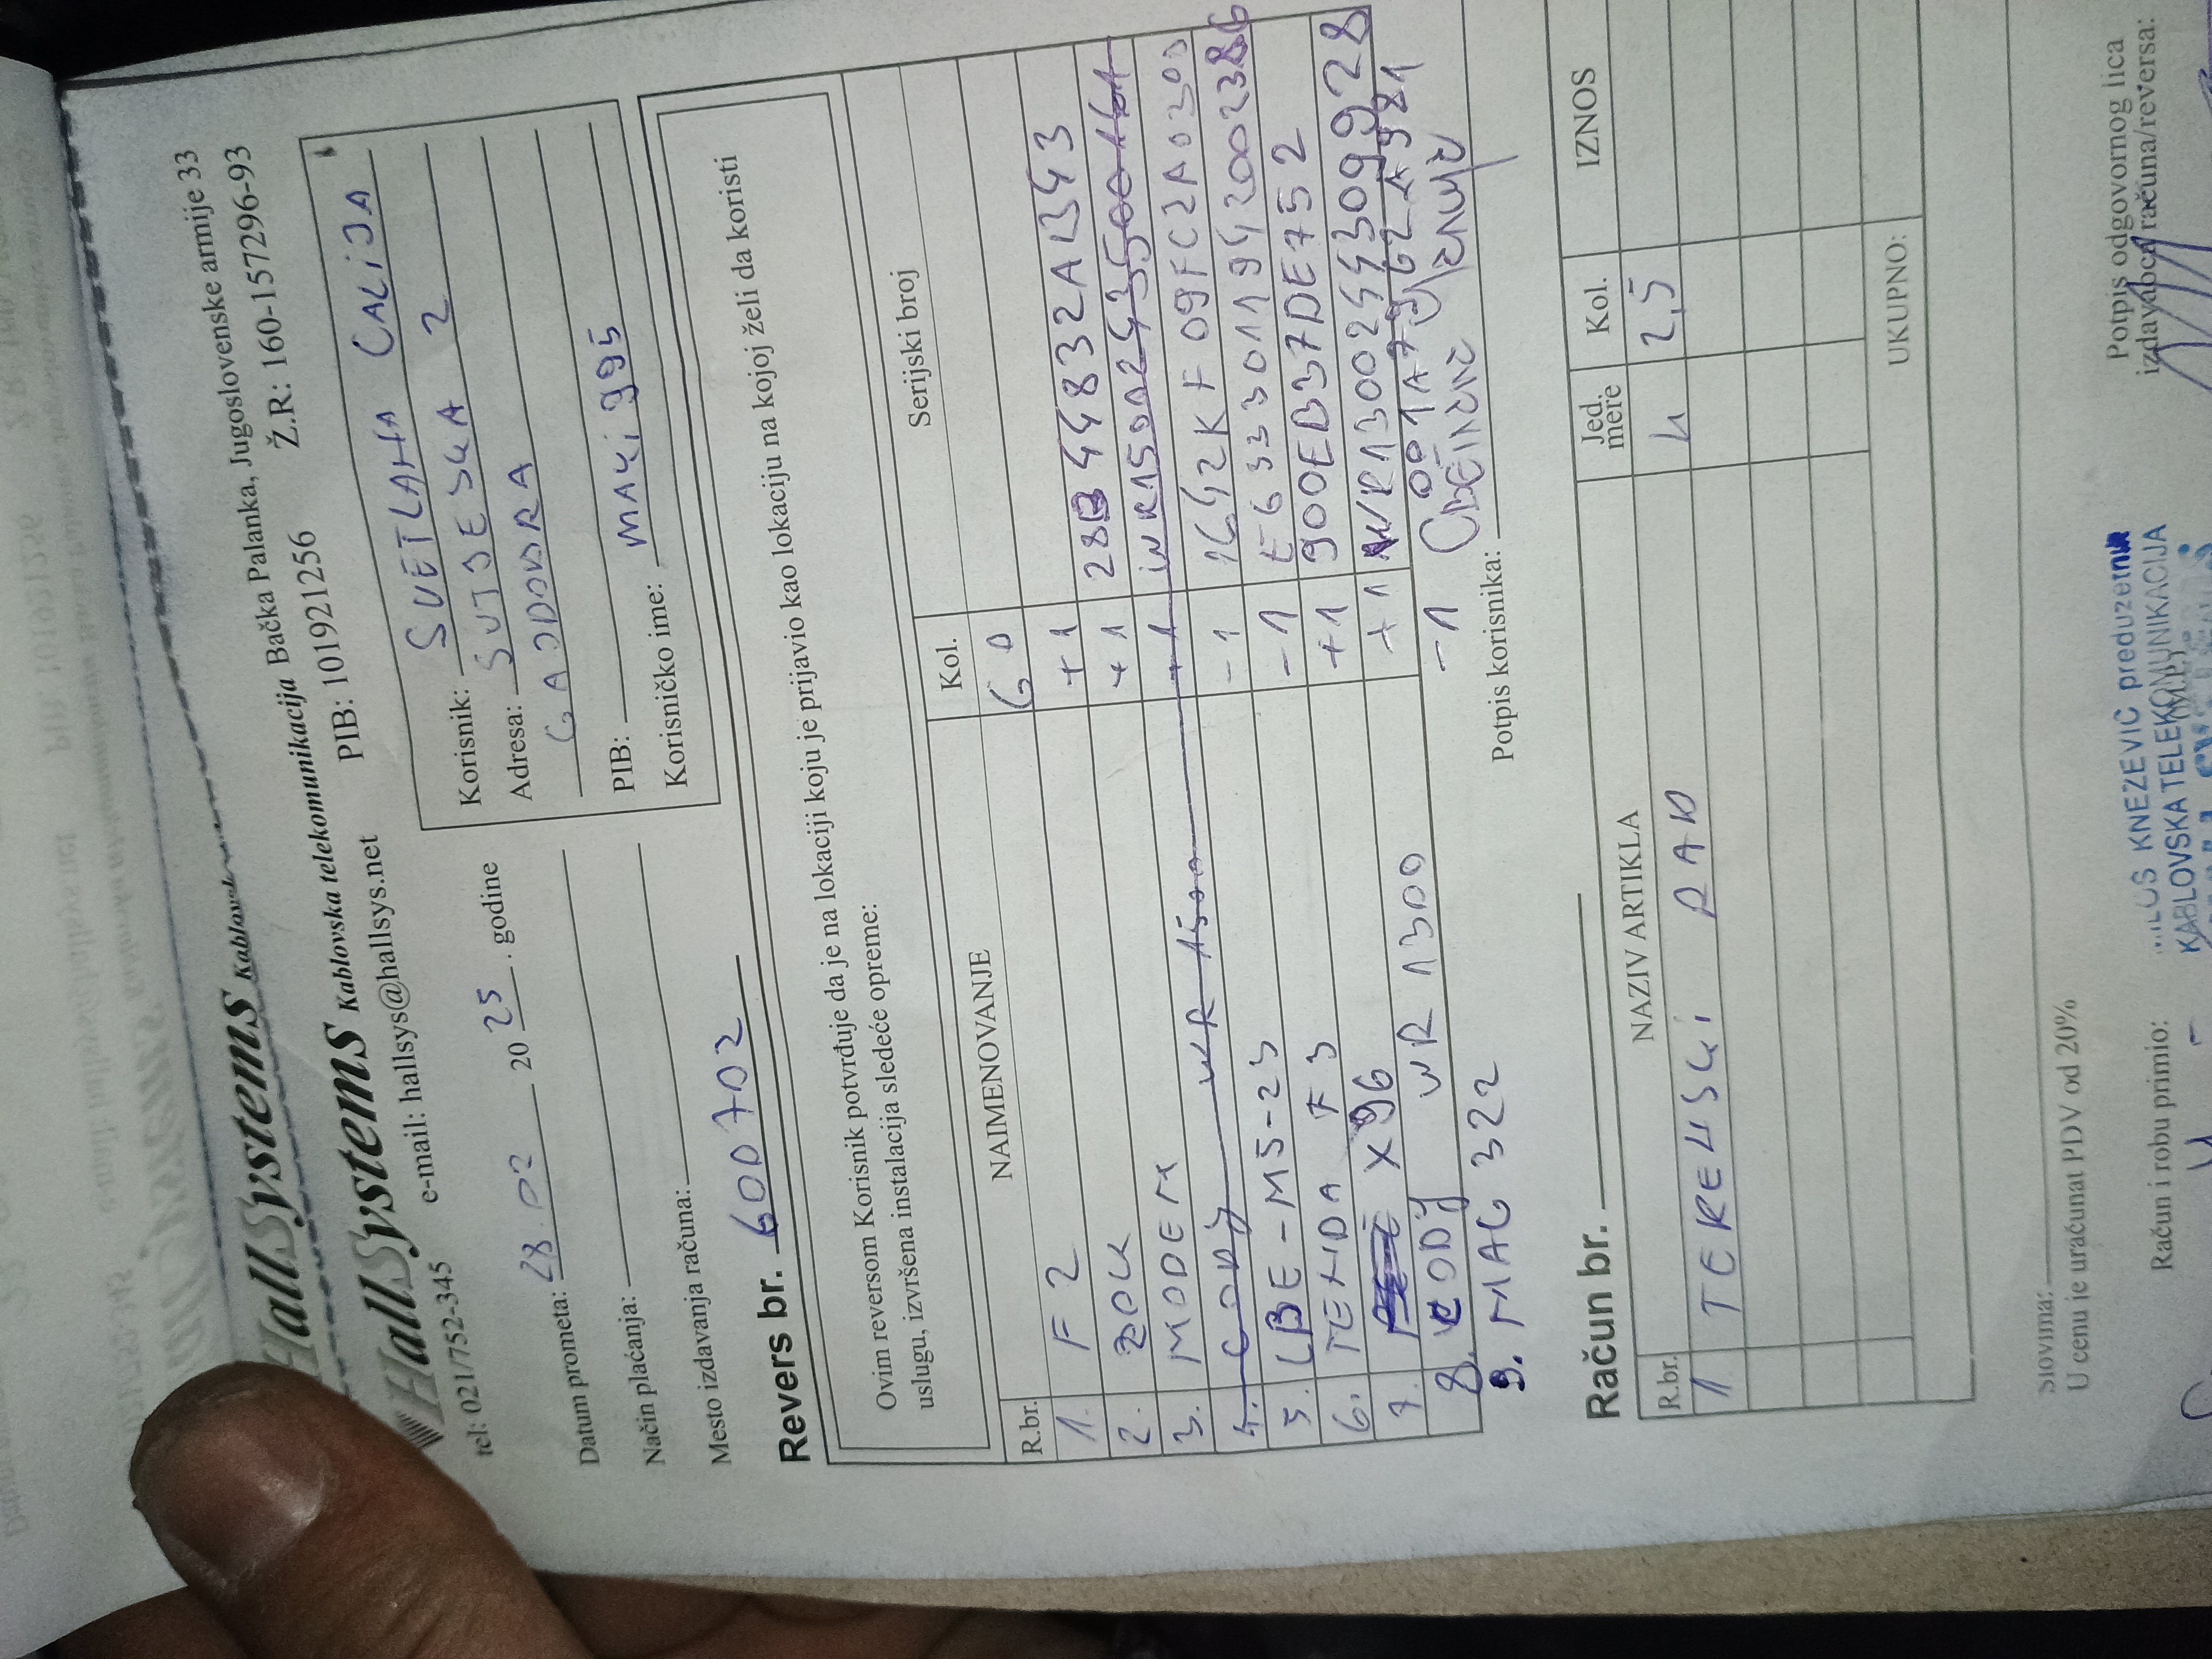 HallSystems Kablovska
HallSystems Kablovska telekomunikacija Bačka Palanka, Jugoslovenske armije 33
tel: 021/752-345 e-mail: hallsys@hallsys.net PIB: 101921256 Ž.R: 160-157296-93
Datum prometa: 28.02 2025. godine
Način plaćanja:
Mesto izdavanja računa:
Korisnik: SVETLANA ĆALIJA
Adresa: SUTJESKA 2
GAJDOBRA
PIB:
Korisničko ime: MAKI995
Revers br. 600702
Ovim reversom Korisnik potvrđuje da je na lokaciji koju je prijavio kao lokaciju na kojoj želi da koristi
uslugu, izvršena instalacija sledeće opreme:
R.br. NAIMENOVANJE Kol. Serijski broj
1. F2 60
2. +1
3. MODEM +1 28B44832AB43
4. WR 1500 +1
5. LBE-M5-23 -1 1642KF09FC2A0300
6. TENDA F3 -1 E6333011942002386
7. X96 +1 900EB37DE752
8. CODY WR 1300 +1 WR1300244309928
9. MAG 322 -1
Potpis korisnika:
Račun br.
R.br. NAZIV ARTIKLA Jed. mere Kol. IZNOS
1 TERENSKI RAD 2,5
UKUPNO:
Slovima:
U cenu je uračunat PDV od 20%
Račun i robu primio:
KNEZEVIC preduzetnik
KABLOVSKA TELEKOMUNIKACIJA
(M.P.)
Potpis odgovornog lica
izdavaoca računa/reversa: